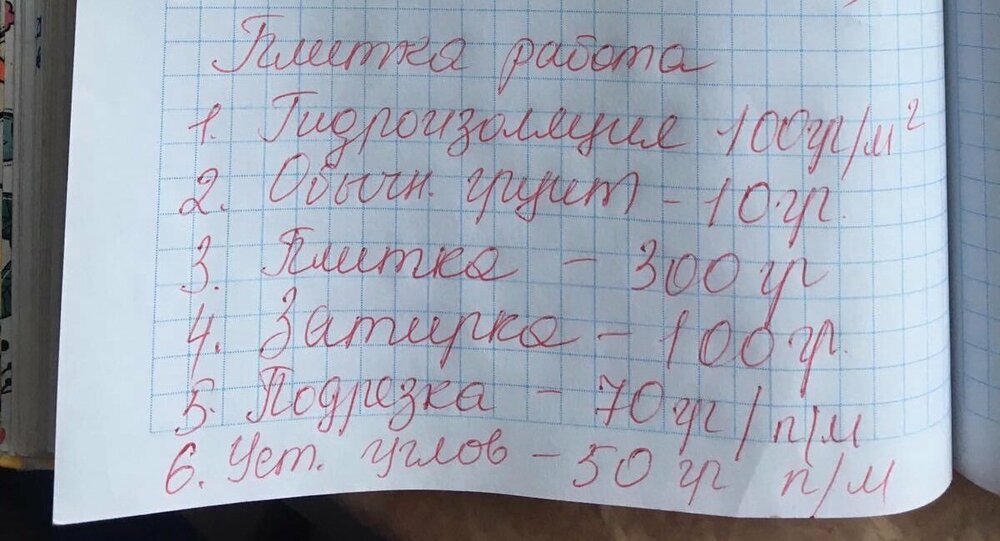 Плитка работа
1. Гидроизоляция 100гр/м²
2. Обычн. грунт - 10 гр.
3. Плитка - 300 гр
4. Затирка - 100 гр.
5. Подрезка - 70 гр/п/м
6. Уст. углов - 50 гр п/м